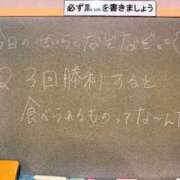 必ず黒で書きましょう
今日のせいらのなぞなぞ
Q 3回勝利すると
食べられるものってな〜んだ